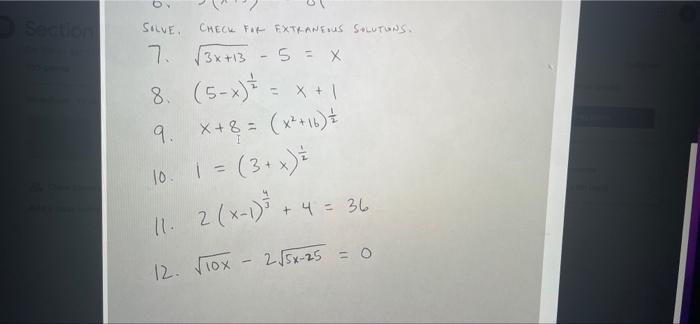 Section
SOLVE. CHECK FOR EXTRANEOUS SOLUTIONS.
7. √(3x+13) - 5 = x
8. (5-x)^(1/2) = x + 1
9. x+8 = (x²+16)^(1/2)
10. 1 = (3+x)^(1/2)
11. 2(x-1)^(4/3) + 4 = 36
12. √(10x) - 2√(5x-25) = 0